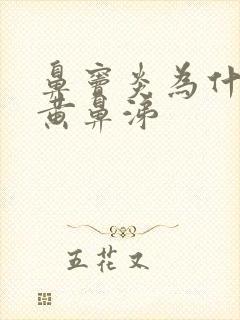 鼻窦炎为什
黄鼻涕
五花又